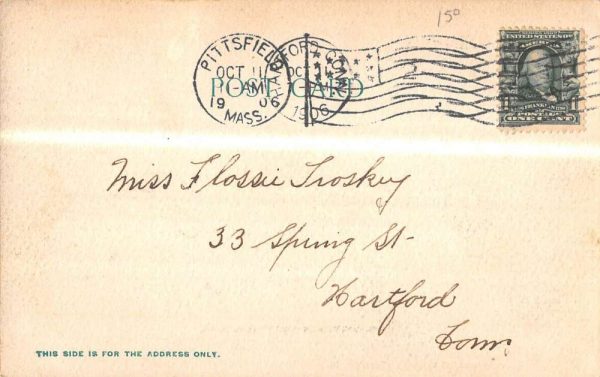 150
PITTSFIELD
OCT 11
AM
19 06
MASS.
HARTFORD, CONN.
OCT 11
1906
POST CARD
SERIES 1902
UNITED STATES OF AMERICA
FRANKLIN
POSTAGE
ONE CENT
Miss Flossie Troskey
33 Spring St-
Hartford
Conn.
THIS SIDE IS FOR THE ADDRESS ONLY.